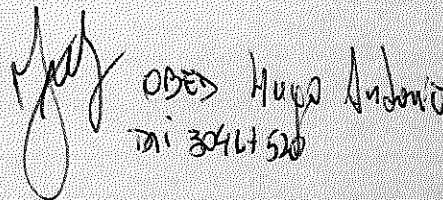 OBED Hugo Antonio
DNI 30467520